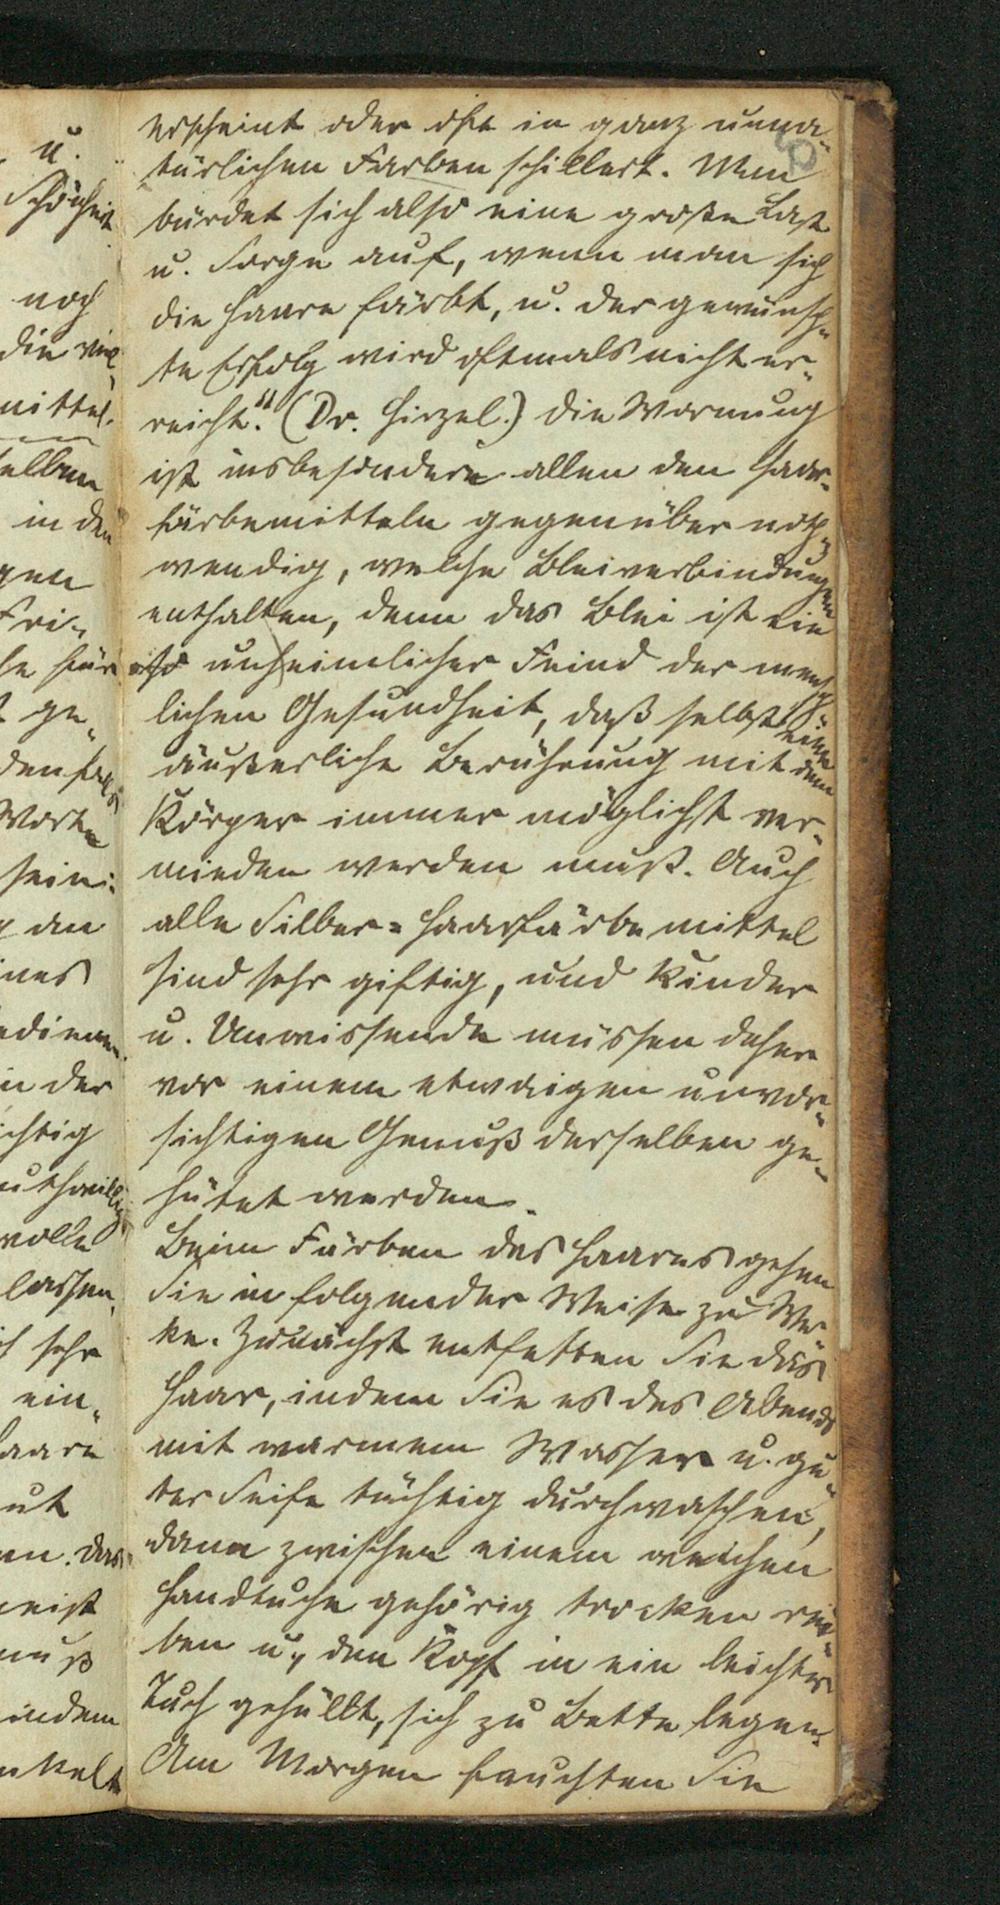 erscheint oder oft in ganz unna-
türlichen Farben schillert. Man
bürdet sich also eine große Last
u. Sorge auf, wenn man sich
die Haare färbt, u. der gewünsch-
te Erfolg wird oftmals nicht er-
reicht." (Dr. Hirzel.) Die Warnung
ist insbesondere allen den Haar-
färbemitteln gegenüber noth-
wendig, welche Bleiverbindungen
enthalten, denn das Blei ist ein
so unheimlicher Feind der mensch-
lichen Gesundheit, daß selbst eine
äußerliche Berührung mit dem
Körper immer möglichst ver-
mieden werden muß. Auch
alle Silber-Haarfärbemittel
sind sehr giftig, und Kinder
u. Unwissende müssen daher
vor einem etwaigen unvor-
sichtigen Genuß derselben ge-
hütet werden.
Beim Färben des Haares gehen
Sie in folgender Weise zu Wer-
ke. Zunächst entfetten Sie das
Haar, indem Sie es des Abends
mit warmem Wasser u. gu-
ter Seife tüchtig durchwaschen,
dann zwischen einem weichen
Handtuche gehörig trocken rei-
ben u., den Kopf in ein leichtes
Tuch gehüllt, sich zu Bette legen.
Am Morgen feuchten Sie